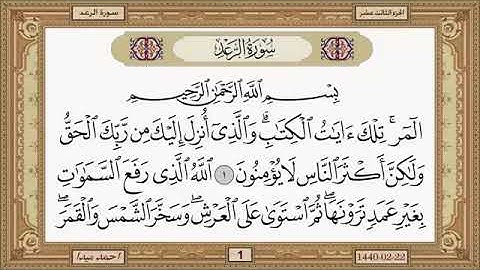 الجزء الثالث عشر
سورة الرعد
سُورَةُ الرَّعْدِ
بِسْمِ اللَّهِ الرَّحْمَٰنِ الرَّحِيمِ
الٓمٓرۚ تِلْكَ ءَايَٰتُ الْكِتَٰبِۗ وَالَّذِىٓ أُنزِلَ إِلَيْكَ مِن رَّبِّكَ الْحَقُّ
وَلَٰكِنَّ أَكْثَرَ النَّاسِ لَا يُؤْمِنُونَ ١ اللَّهُ الَّذِى رَفَعَ السَّمَٰوَٰتِ
بِغَيْرِ عَمَدٍ تَرَوْنَهَاۖ ثُمَّ اسْتَوَىٰ عَلَى الْعَرْشِۖ وَسَخَّرَ الشَّمْسَ وَالْقَمَرَۖ
1440-02-22
1